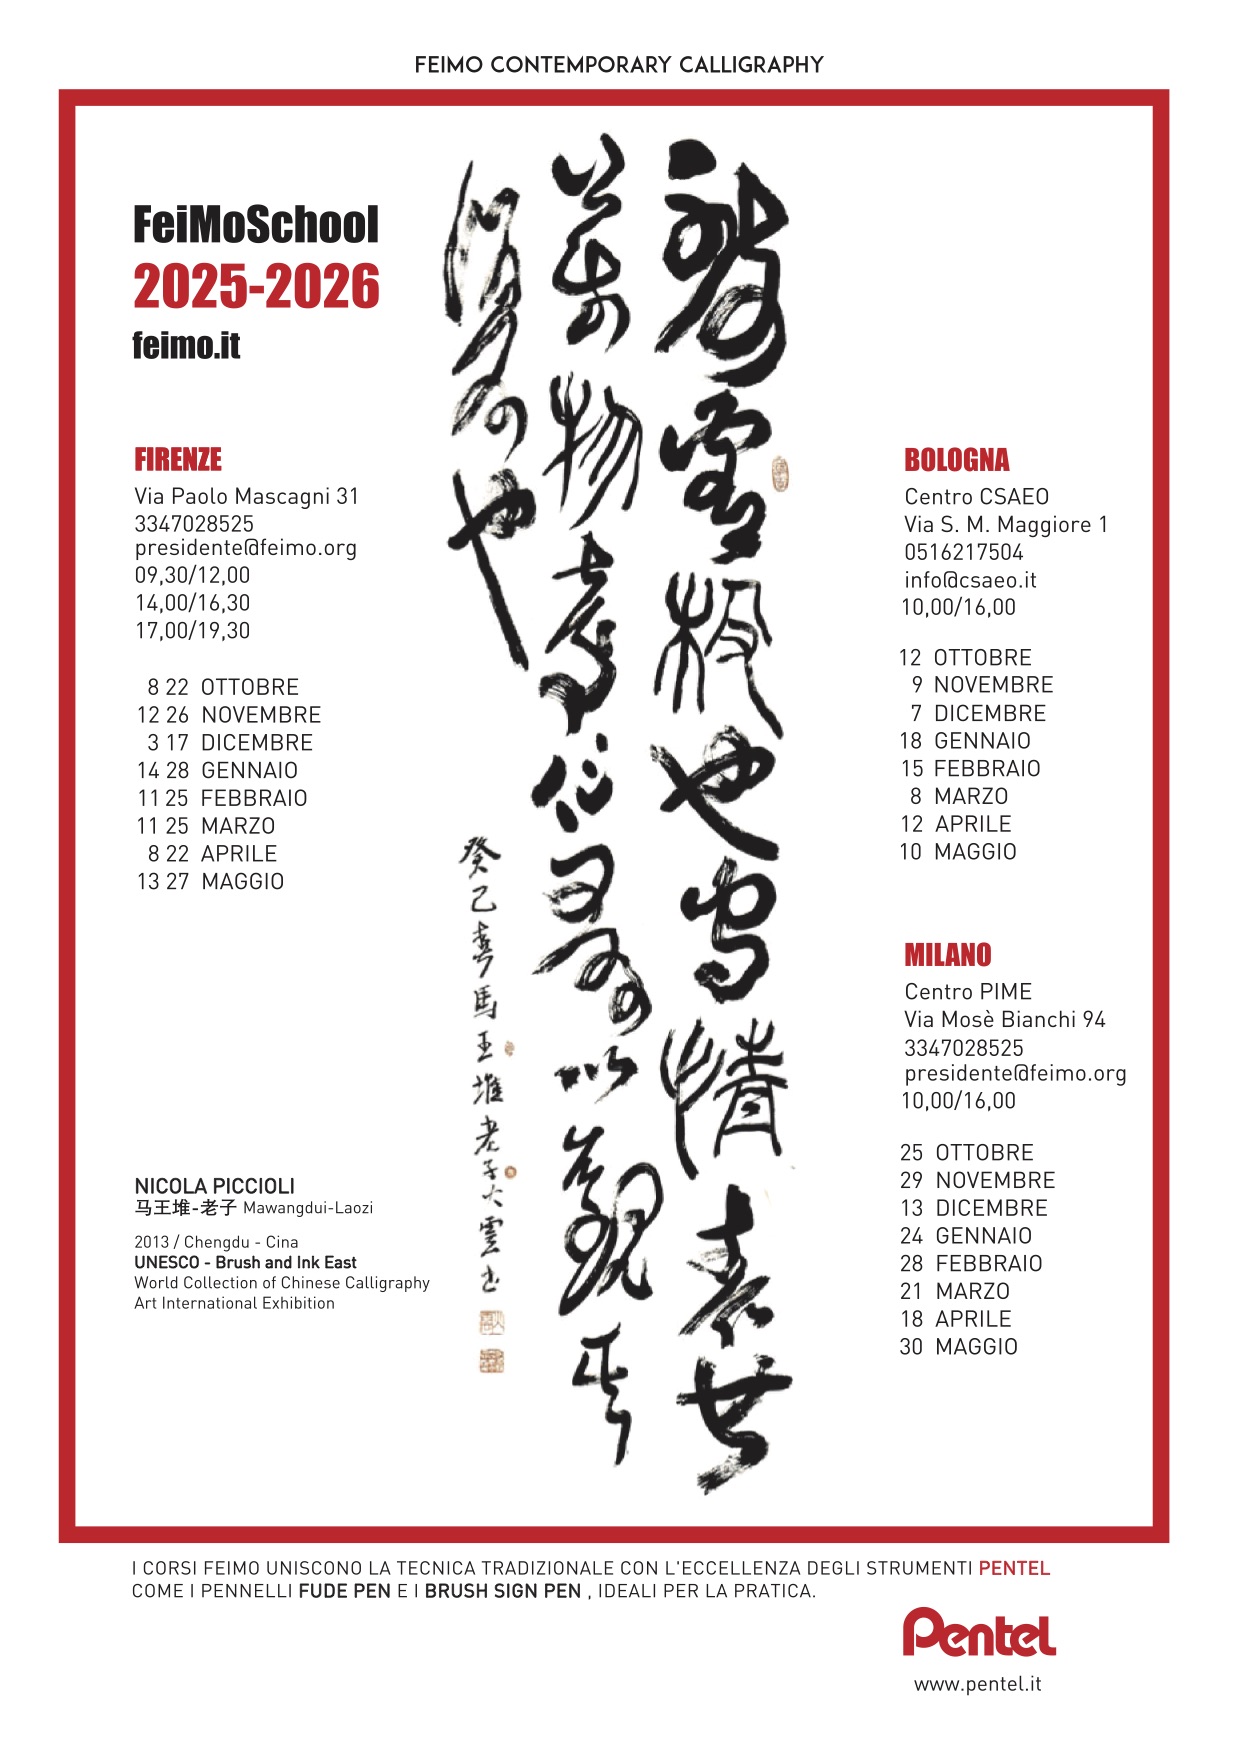 FEIMO CONTEMPORARY CALLIGRAPHY
FeiMoSchool
2025-2026
feimo.it
FIRENZE
Via Paolo Mascagni 31
3347028525
presidente@feimo.org
09,30/12,00
14,00/16,30
17,00/19,30
8 22 OTTOBRE
12 26 NOVEMBRE
3 17 DICEMBRE
14 28 GENNAIO
11 25 FEBBRAIO
11 25 MARZO
8 22 APRILE
13 27 MAGGIO
NICOLA PICCIOLI
马王堆-老子 Mawangdui-Laozi
2013 / Chengdu - Cina
UNESCO - Brush and Ink East
World Collection of Chinese Calligraphy
Art International Exhibition
極也守情表
物 以觀其
也
癸巳春馬王堆老子
BOLOGNA
Centro CSAEO
Via S. M. Maggiore 1
0516217504
info@csaeo.it
10,00/16,00
12 OTTOBRE
9 NOVEMBRE
7 DICEMBRE
18 GENNAIO
15 FEBBRAIO
8 MARZO
12 APRILE
10 MAGGIO
MILANO
Centro PIME
Via Mosè Bianchi 94
3347028525
presidente@feimo.org
10,00/16,00
25 OTTOBRE
29 NOVEMBRE
13 DICEMBRE
24 GENNAIO
28 FEBBRAIO
21 MARZO
18 APRILE
30 MAGGIO
I CORSI FEIMO UNISCONO LA TECNICA TRADIZIONALE CON L'ECCELLENZA DEGLI STRUMENTI PENTEL
COME I PENNELLI FUDE PEN E I BRUSH SIGN PEN , IDEALI PER LA PRATICA.
Pentel
www.pentel.it